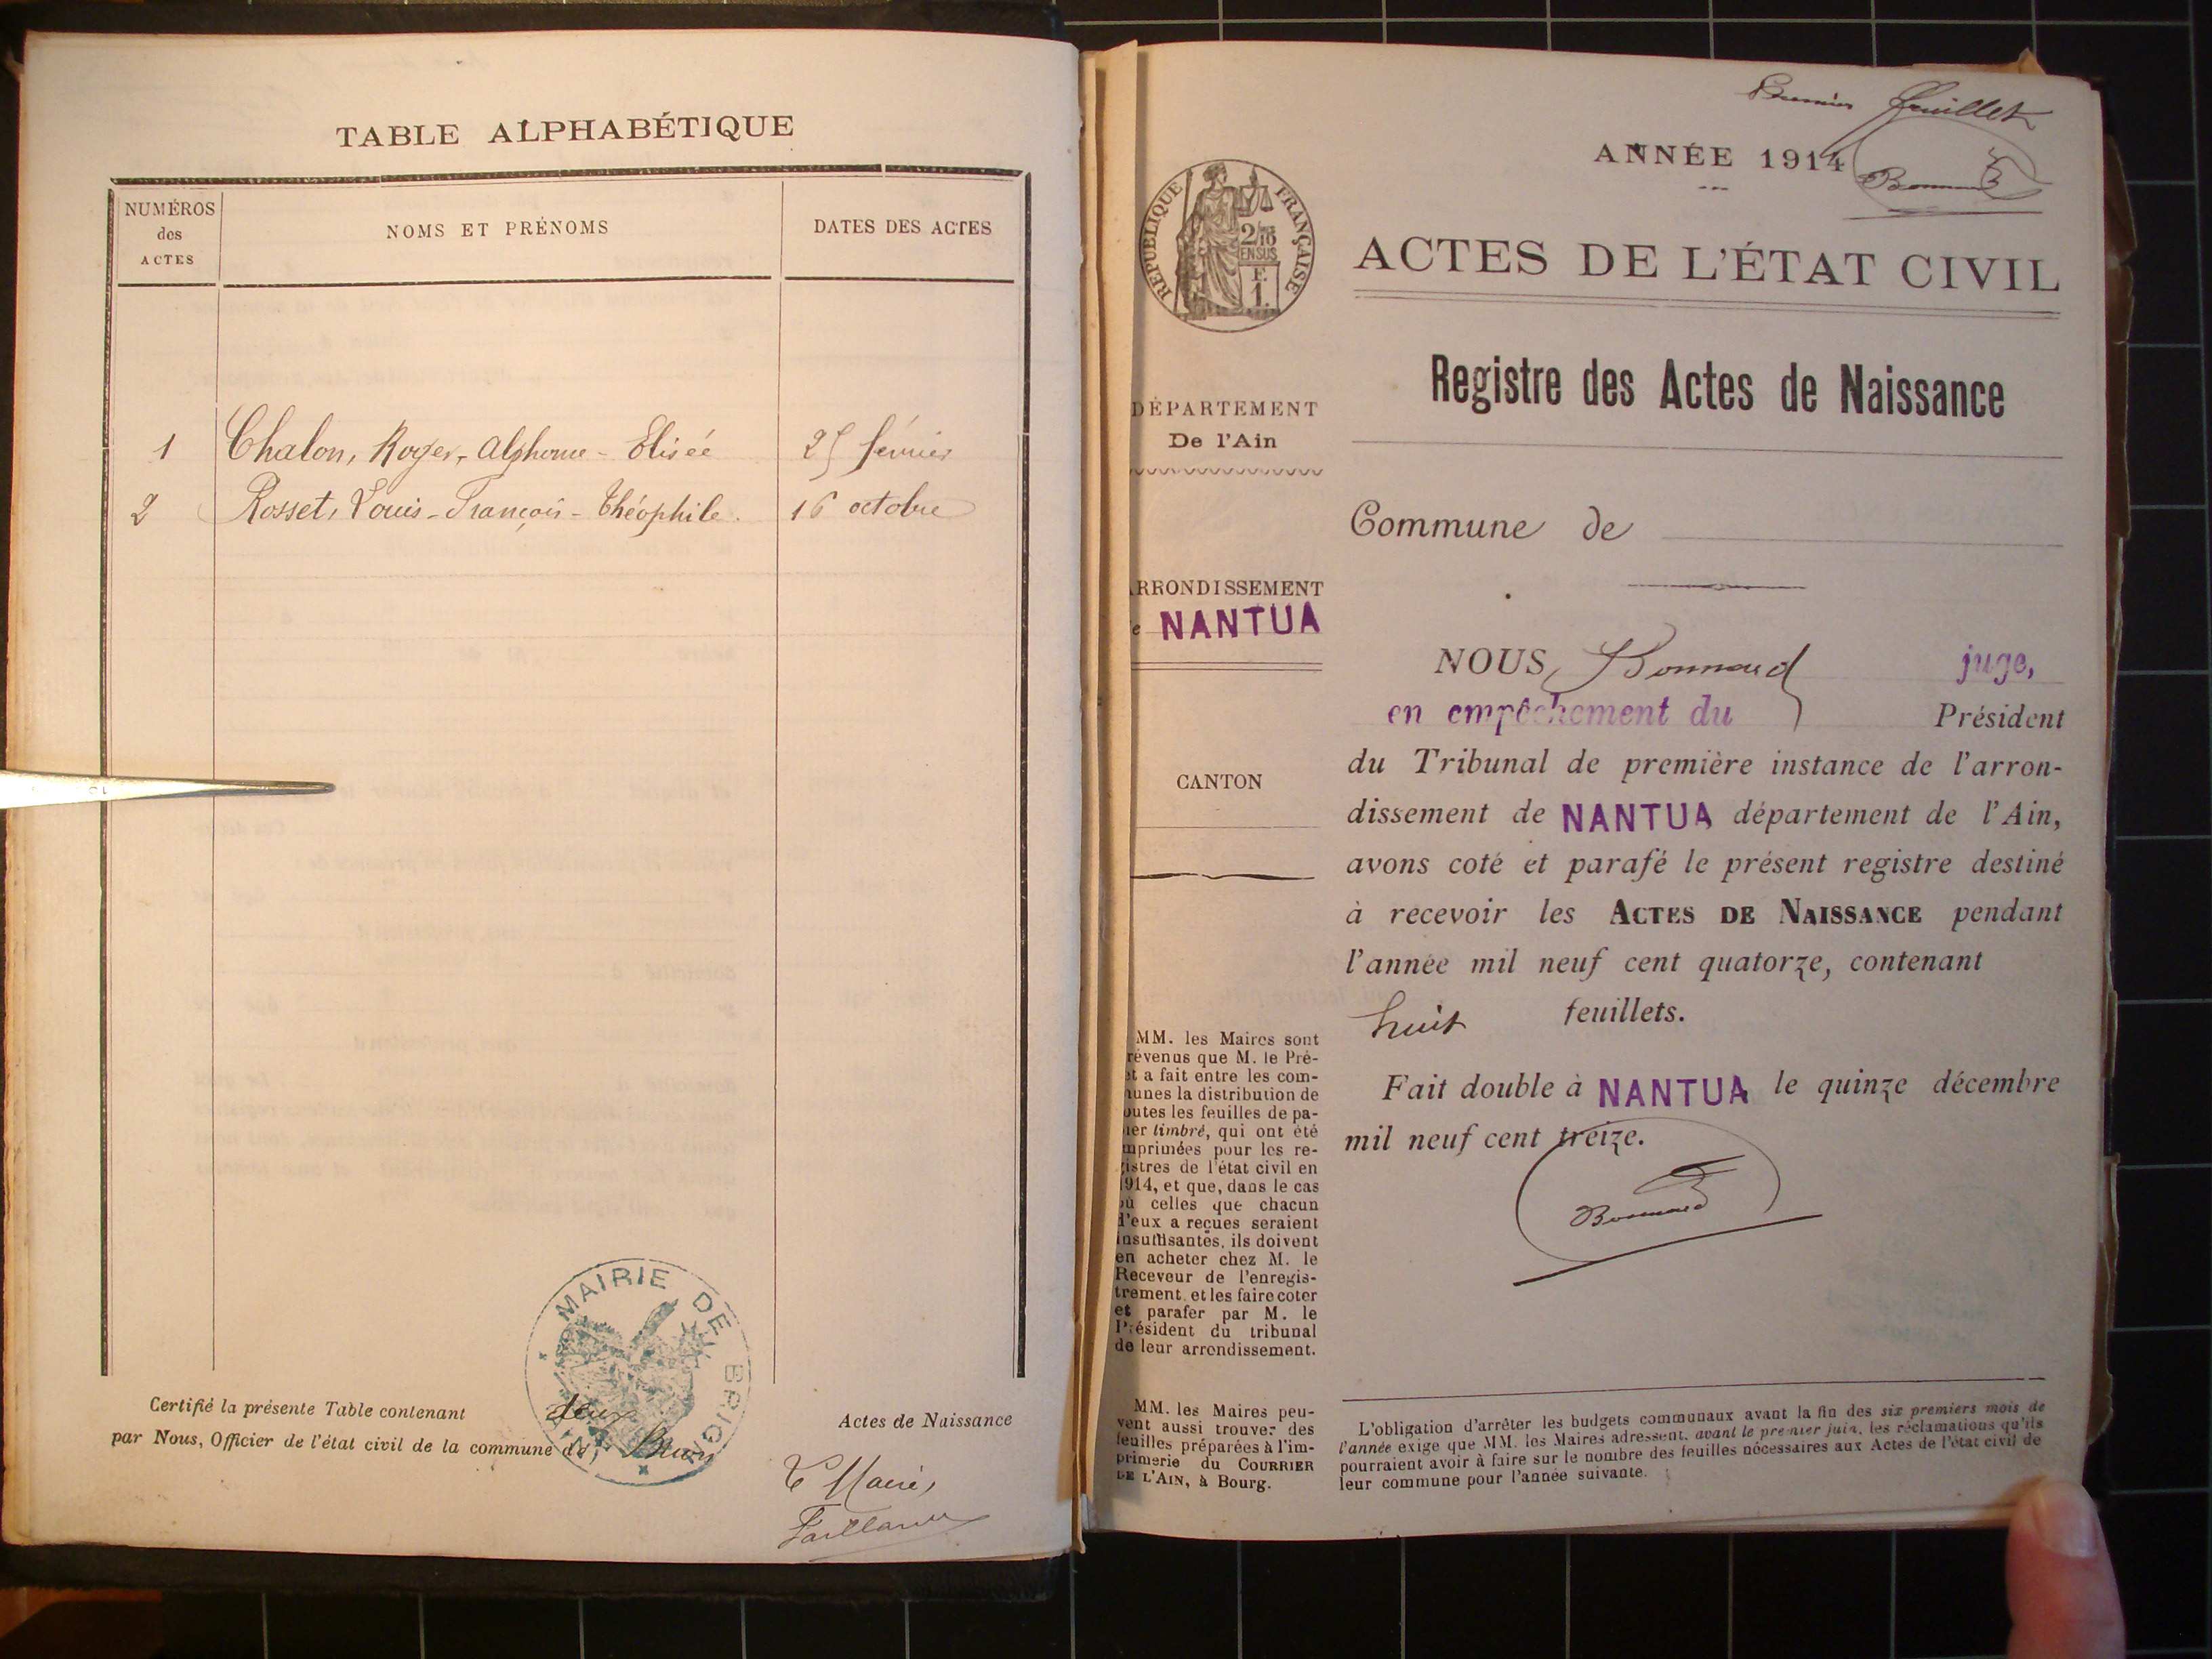 TABLE ALPHABÉTIQUE
NUMÉROS
des
ACTES
NOMS ET PRÉNOMS
DATES DES ACTES
1 Chalon, Roger, Alphonse - Elisée 25 février
2 Rosset, Louis - François - Théophile. 16 octobre
MAIRIE DE BRIGN
Certifié la présente Table contenant deux Actes de Naissance
par Nous, Officier de l'état civil de la commune de
Le Maire,
Premier feuillet
ANNÉE 1914
Bonnard
RÉPUBLIQUE FRANÇAISE
2/10
EN SUS
F.
1.
ACTES DE L'ÉTAT CIVIL
Registre des Actes de Naissance
DÉPARTEMENT
De l'Ain
Commune de
RRONDISSEMENT
e NANTUA
CANTON
NOUS, Bonnard juge,
en empêchement du Président
du Tribunal de première instance de l'arron-
dissement de NANTUA département de l'Ain,
avons coté et parafé le présent registre destiné
à recevoir les ACTES DE NAISSANCE pendant
l'année mil neuf cent quatorze, contenant
huit feuillets.
Fait double à NANTUA le quinze décembre
mil neuf cent treize.
Bonnard
MM. les Maires sont
révenus que M. le Pré-
et a fait entre les com-
unes la distribution de
outes les feuilles de pa-
ier timbré, qui ont été
mprimées pour les re-
istres de l'état civil en
1914, et que, dans le cas
où celles que chacun
d'eux a reçues seraient
insuffisantes, ils doivent
en acheter chez M. le
Receveur de l'enregis-
trement, et les faire coter
et parafer par M. le
Président du tribunal
de leur arrondissement.
MM. les Maires peu-
vent aussi trouver des
feuilles préparées à l'im-
primerie du COURRIER
DE L'AIN, à Bourg.
L'obligation d'arrêter les budgets communaux avant la fin des six premiers mois de
l'année exige que MM. les Maires adressent, avant le premier juin, les réclamations qu'ils
pourraient avoir à faire sur le nombre des feuilles nécessaires aux Actes de l'état civil de
leur commune pour l'année suivante.